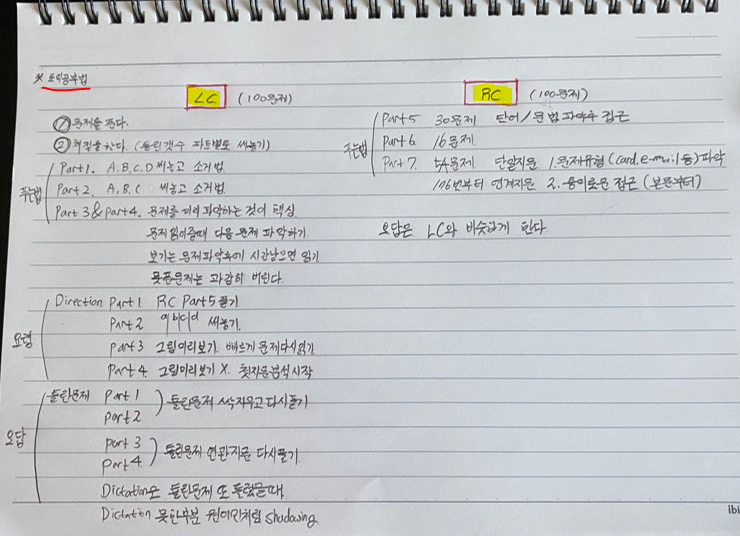 * 토익공부법
LC (100문제)
① 문제를 푼다.
② 채점을 한다. (틀린갯수 파트별로 세놓기)
푸는법
Part 1. A, B, C, D 써놓고 소거법.
Part 2. A, B, C 써놓고 소거법.
Part 3 & Part 4. 문제를 미리 파악하는 것이 핵심.
문제 읽어줄때 다음 문제 파악하기
보기는 문제파악후에 시간남으면 읽기
못푼문제는 과감히 버린다.
요령
Direction Part 1 RC Part 5 풀기
Part 2 에이비씨 써놓기.
Part 3 그림미리보기. 빠르게 문제다시읽기
Part 4. 그림미리보기 X. 첫지문분석시작
오답
틀린문제 Part 1
Part 2
틀린문제 싹지우고 다시풀기
Part 3
Part 4
틀린문제 연관지문 다시풀기.
Dictation은 틀린문제 또 틀렸을때.
Dictation 못한부분 원어민처럼 Shadowing
RC (100문제)
푸는법
Part 5 30문제 단어/문법 파악후 접근
Part 6 16문제.
Part 7. 54문제 단일지문 1. 문제유형 (card, e-mail 등) 파악
176번부터 연계지문 2. 흥미로운 접근 (본문부터)
오답은 LC와 비슷하게 한다.
ibi